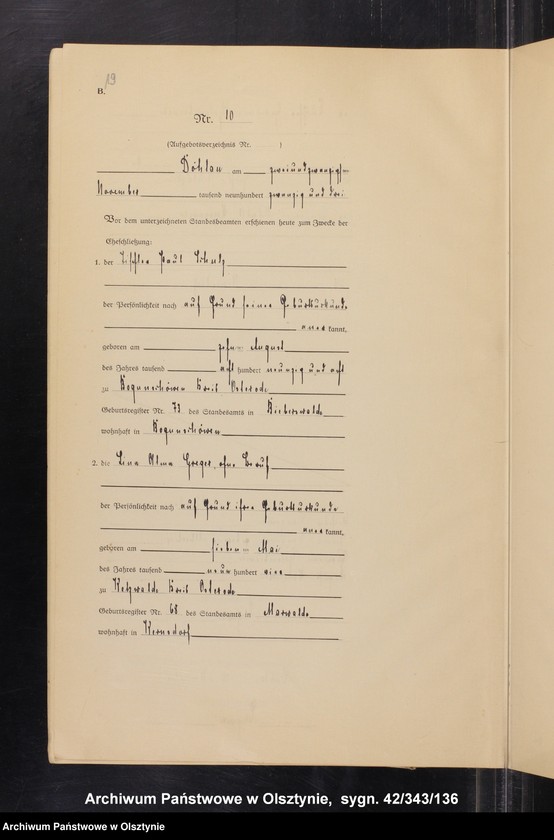 19
B.
Nr. 10
(Aufgebotsverzeichnis Nr. )
Döhlau am zweiundzwanzigsten
November tausend neunhundert zwanzig und drei
Vor dem unterzeichneten Standesbeamten erschienen heute zum Zwecke der
Eheschließung:
1. der Tischler Paul Schulz
der Persönlichkeit nach auf Grund seiner Geburtsurkunde
aner kannt,
geboren am zehnten August
des Jahres tausend acht hundert neunzig und acht
zu Kreis Osterode
Geburtsregister Nr. 73 des Standesamts in Bieberswalde
wohnhaft in
2. die Lina Alma ohne Beruf
der Persönlichkeit nach auf Grund ihrer Geburtsurkunde
aner kannt,
geboren am siebenten Mai
des Jahres tausend neun hundert vier
zu Ketzwalde Kreis Osterode
Geburtsregister Nr. 68 des Standesamts in Marwalde
wohnhaft in Kernsdorf
Archiwum Państwowe w Olsztynie, sygn. 42/343/136
Archiwum Państwowe w Olsztynie